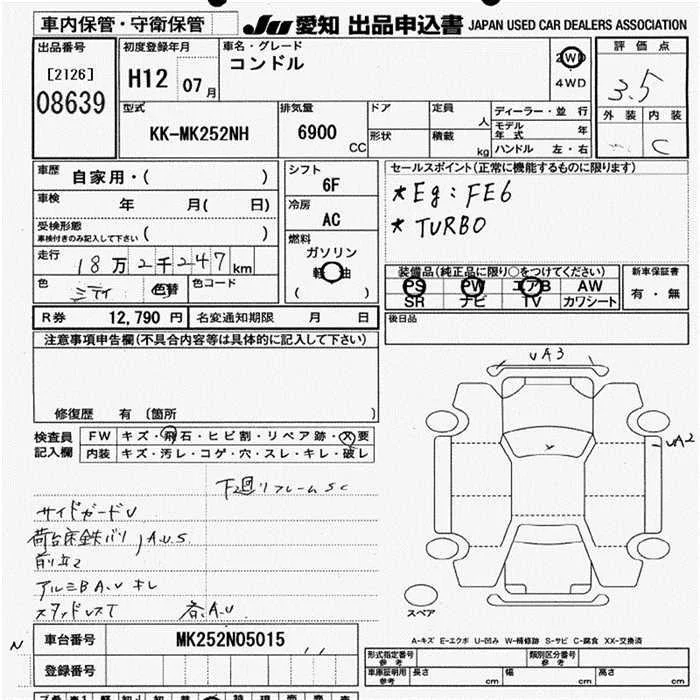 車内保管・守衛保管
JU 愛知 出品申込書 JAPAN USED CAR DEALERS ASSOCIATION
出品番号
[2126]
08639
初度登録年月
H12 07月
車名・グレード
コンドル
2WD
4WD
評価点
3.5
外装 内装
C
型式
KK-MK252NH
排気量
6900
CC
ドア
形状
定員
人
積載
kg
ディーラー・並 行
モデル年式 年
ハンドル 左・右
車歴
自家用・( )
車検
年 月( 日)
受検形態
車検付きのみ記入して下さい ( )
走行
18万2千247km
色
色替
色コード
シフト
6F
冷房
AC
燃料
ガソリン
軽油
( )
セールスポイント(正常に機能するものに限ります)
*Eg:FE6
*TURBO
装備品(純正品に限り○をつけてください)
PS PW エアB AW
SR ナビ TV カワシート
新車保証書
有・無
R券 12,790 円
名変通知期限 月 日
後日品
注意事項申告欄(不具合内容等は具体的に記入して下さい)
修復歴 有 〔箇所 〕
検査員記入欄
FW キズ・飛石・ヒビ割・リペア跡・X要
内装 キズ・汚レ・コゲ・穴・スレ・キレ・破レ
下回リフレームSC
サイドガードU
荷台床鉄バリ,A.U.S
アルミBA.Uキレ
スタッドレスT
各A.U
UA3
UA2
スペア
A-キズ E-エクボ U-凹み W-補修跡 S-サビ C-腐食 XX-交換済
N
車台番号
MK252N05015
登録番号
形式指定番号
参考
類別区分番号
参考
車庫証明用
参考
長さ cm
幅 cm
高さ cm